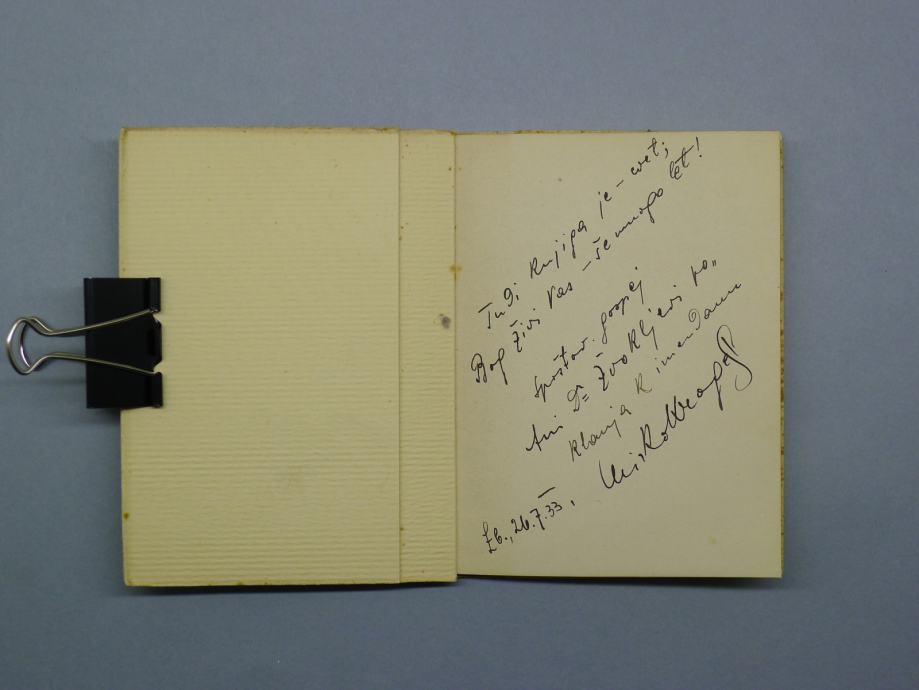 Tudi knjiga je – cvet;
Bog živi Vas – še mnogo let!
Spoštov. gospej
Ani Dr Žvokljevi po„
klanja k imendanu
Mirko Kragelj
Lb., 26.7.33.